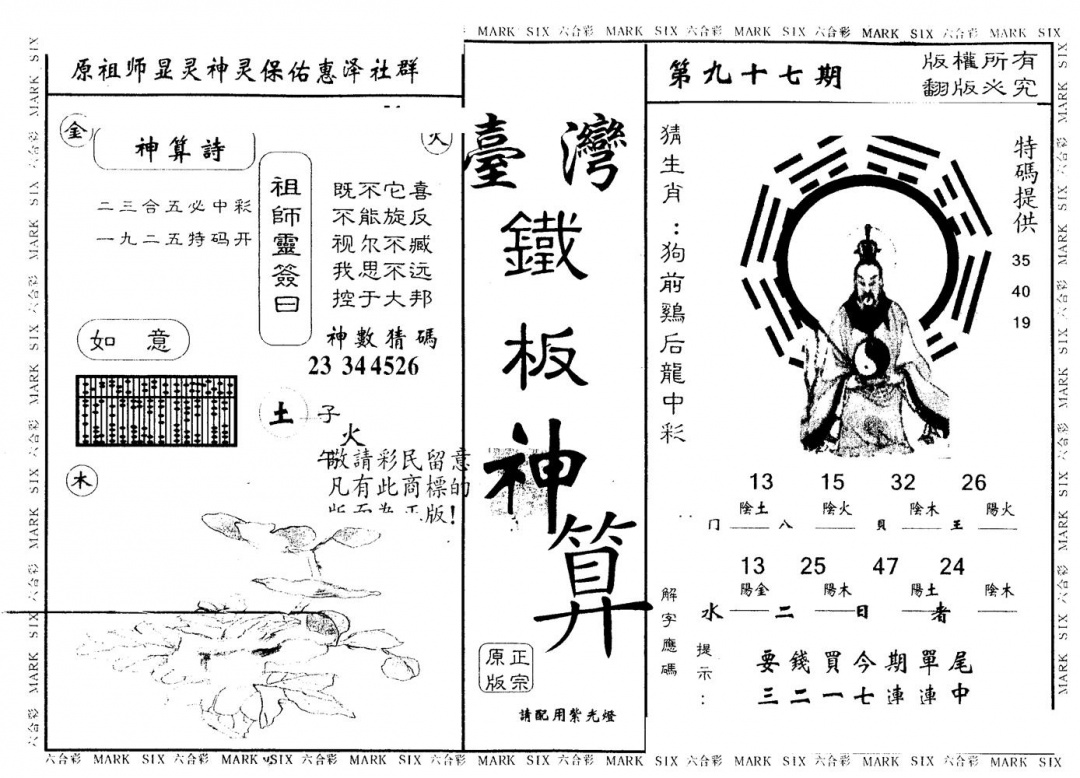 MARK SIX 六合彩 MARK SIX 六合彩 MARK SIX 六合彩 MARK SIX 六合彩 MARK SIX
原祖师显灵神灵保佑惠泽社群
金
火
神算詩
二三合五必中彩
一九二五特码开
祖師靈簽曰
既不它喜
不能旋反
视尔不臧
我思不远
控于大邦
神數猜碼
23 344526
如意
土
子
火
午
木
敬請彩民留意
凡有此商標的
版面為正版!
臺灣
鐵
板
神
算
正宗
原版
請配用紫光燈
第九十七期
版權所有
翻版必究
猜生肖:狗前鷄后龍中彩
特碼提供
35
40
19
13 15 32 26
陰土 陰火 陰木 陽火
门 八 貝 王
13 25 47 24
陽金 陽木 陽土 陰木
水 二 日 者
解字應碼
提示:
要錢買今期單尾
三二一七連連中
六合彩 MARK SIX 六合彩 MARK SIX 六合彩 MARK SIX 六合彩 MARK SIX 六合彩 MARK SIX 六合彩 MARK SIX 六合彩 MARK SIX 六合彩 MARK SIX